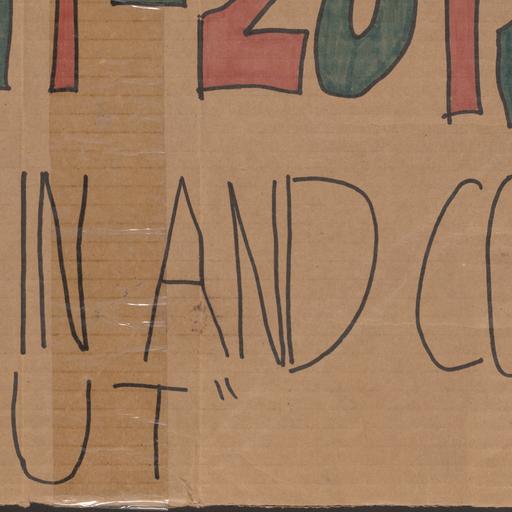 1-201
IN AND CO
UT"